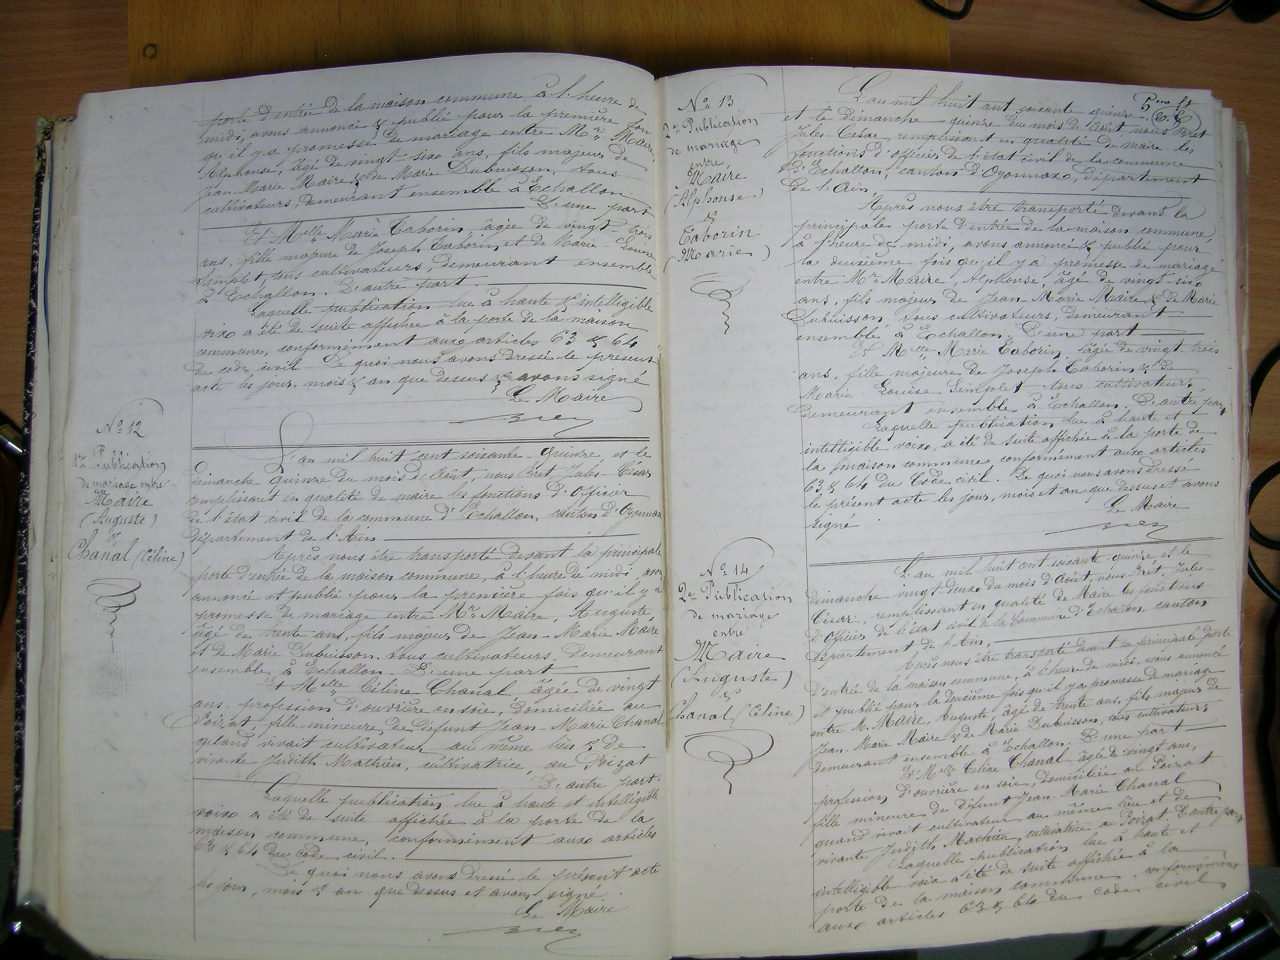 porte d'entrée de la maison commune à l'heure de
midi, avons annoncé & publié pour la première fois
qu'il y a promesse de mariage entre Mr Maire,
Alphonse, âgé de vingt-six ans, fils majeur de
Jean Marie Maire & de Marie Dubuisson, tous
cultivateurs, demeurant ensemble à Echallon
D'une part
Et Melle Marie Taborin, âgée de vingt trois
ans, fille majeure de Joseph Taborin et de Marie Louise
Simplet, tous cultivateurs, demeurant ensemble
à Echallon. D'autre part
Laquelle publication lue à haute & intelligible
voix a été de suite affichée à la porte de la maison
commune, conformément aux articles 63 & 64
du code civil. De quoi nous avons dressé le présent
acte les jour, mois & an que dessus & avons signé
Le Maire
No 12
1re Publication
de mariage entre
Maire
(Auguste)
&
Chanal (Céline)
L'an mil huit cent soixante-quinze, et le
dimanche quinze du mois d'Août, nous Prêt Jules-César
remplissant en qualité de maire les fonctions d'Officier
de l'état civil de la commune d'Echallon, canton d'Oyonnax
département de l'Ain
Après nous être transporté devant la principale
porte d'entrée de la maison commune, à l'heure de midi, avons
annoncé et publié pour la première fois qu'il y a
promesse de mariage entre Mr Maire, Auguste
âgé de trente ans, fils majeur de Jean-Marie Maire
et de Marie Dubuisson, tous cultivateurs, demeurant
ensemble, à Echallon. D'une part
Et Melle Céline Chanal âgée de vingt
ans, profession d'ouvrière en soie, domiciliée au
Poizat fille mineure de défunt Jean-Marie Chanal
quand vivait cultivateur au même lieu & de
vivante Judith Mathieu, cultivatrice, au Poizat
D'autre part
Laquelle publication lue à haute et intelligible
voix a été de suite affichée à la porte de la
maison commune, conformément aux articles
63 & 64 du code civil.
De quoi nous avons dressé le présent acte
les jour, mois & an que dessus et avons signé.
Le Maire
No 13
2e Publication
de mariage
entre
Maire
(Alphonse)
&
Taborin
(Marie)
L'an mil huit cent soixante quinze
et le Dimanche quinze du mois d'Août nous Prêt
Jules César, remplissant en qualité de maire les
fonctions d'officier de l'état civil de la commune
d'Echallon, canton d'Oyonnax, département
de l'Ain.
Après nous être transporté devant la
principale porte d'entrée de la maison commune,
à l'heure de midi, avons annoncé & publié pour
la deuxième fois qu'il y a promesse de mariage
entre Mr Maire, Alphonse, âgé de vingt-six
ans, fils majeur de Jean Marie Maire & de Marie
Dubuisson, tous cultivateurs, demeurant
ensemble à Echallon, D'une part
Et Melle Marie Taborin, âgée de vingt-trois
ans, fille majeure de Joseph Taborin & de
Marie Louise Simplet tous cultivateurs,
demeurant ensemble à Echallon. D'autre part,
Laquelle publication lue à haute et
intelligible voix, a été de suite affichée à la porte de
la maison commune conformément aux articles
63 & 64 du Code civil. De quoi nous avons dressé
le présent acte les jour, mois et an que dessus et avons
signé
Le Maire
No 14
2e Publication
de mariage
entre
Maire
(Auguste)
&
Chanal (Céline)
L'an mil huit cent soixante-quinze et le
dimanche vingt-deux du mois d'Août, nous Prêt, Jules-
César, remplissant en qualité de Maire les fonctions
d'Officier de l'état civil de la commune d'Echallon canton
département de l'Ain,
Après nous être transporté devant la principale porte
d'entrée de la maison commune, à l'heure de midi, avons annoncé
et publié pour la deuxième fois qu'il y a promesse de mariage
entre M. Maire, Auguste, âgé de trente ans, fils majeur de
Jean Marie Maire & de Marie Dubuisson, tous cultivateurs,
demeurant ensemble à Echallon. D'une part
Et Melle Céline Chanal âgée de vingt ans,
profession d'ouvrière en soie, domiciliée au Poizat
fille mineure de défunt Jean Marie Chanal
quand vivait cultivateur au même lieu et de
vivante Judith Mathieu, cultivatrice au Poizat D'autre part
Laquelle publication lue à haute et
intelligible voix a été de suite affichée à la
porte de la maison commune, conformément
aux articles 63 & 64 du code civil